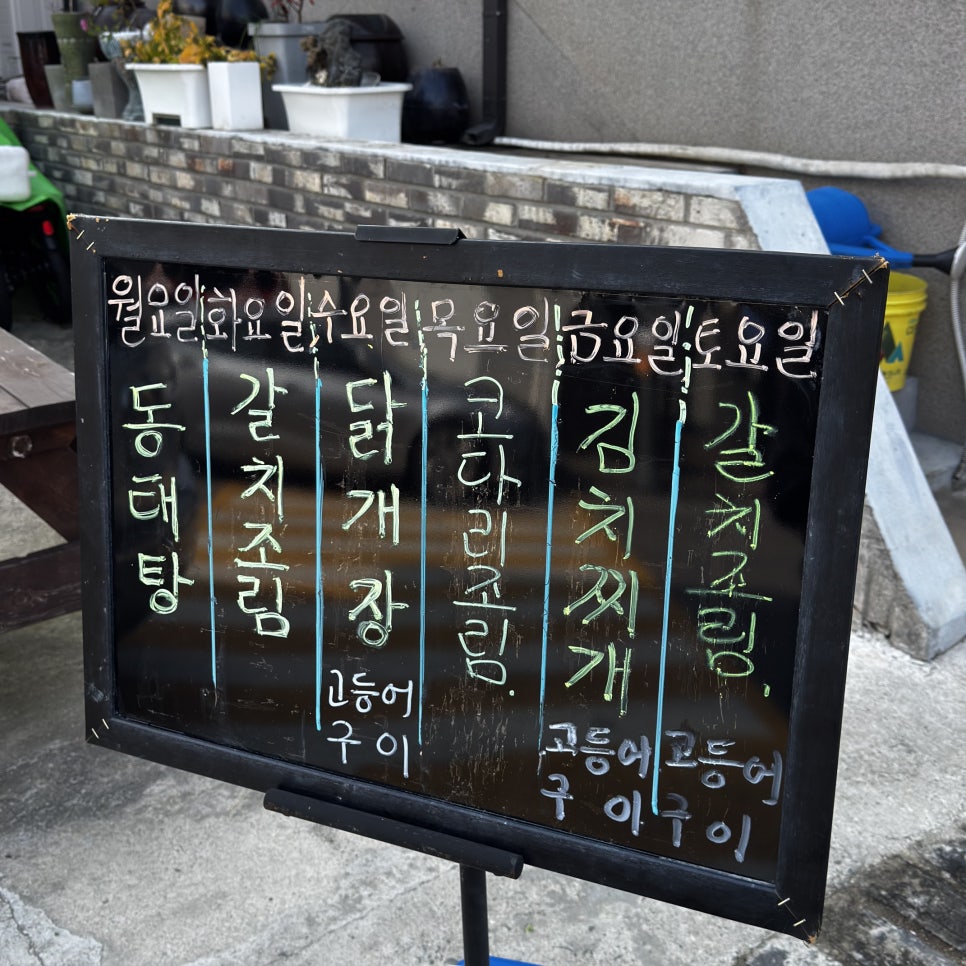 월요일
동태탕
화요일
갈치조림
수요일
닭개장
고등어
구이
목요일
코다리조림.
금요일
김치찌개
고등어
구이
토요일
갈치조림.
고등어
구이